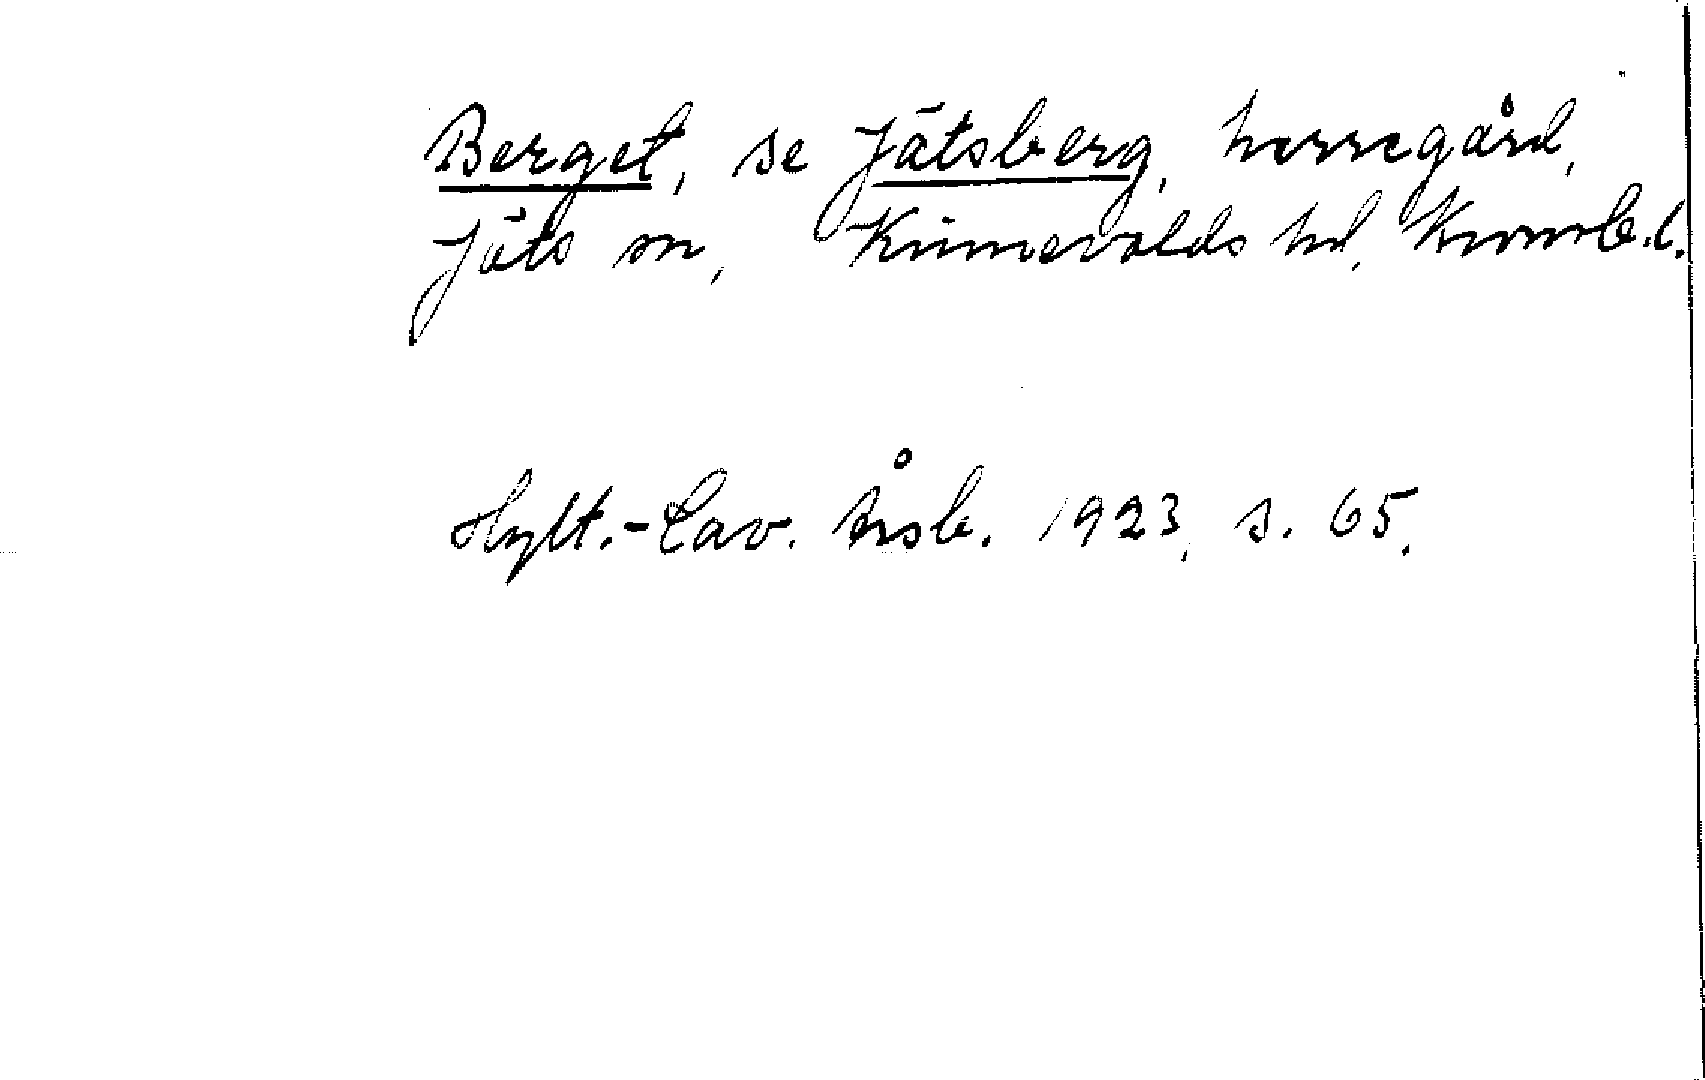 Berget, se Jätsberg, herregård,
Jäts sn, Kinnevalds hd, Kronob. l.
Hylt.-Cav. Årsb. 1923, s. 65.